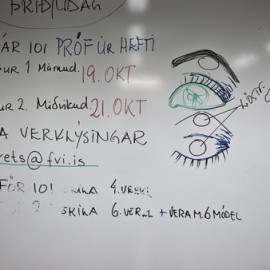 ÞRIÐJUDAG
ÁR 101 PRÓF ÚR HEFTI
UR 1 Mánud. 19. OKT
UR 2. Miðvikud. 21. OKT
A VERKLÝSINGAR
rets@fvi.is
FÖR 101 SKILA 4. VERK
2 SKILA 6. VERK + VERA M. 6 MÓDEL